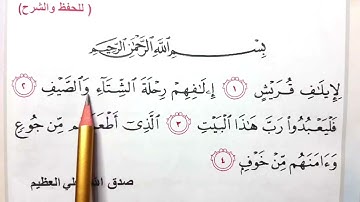 ( للحفظ والشرح )
بِسْمِ اللَّهِ الرَّحْمَٰنِ الرَّحِيمِ
لِإِيلَٰفِ قُرَيْشٍ ١ إِۦلَٰفِهِمْ رِحْلَةَ الشِّتَآءِ وَالصَّيْفِ ٢
فَلْيَعْبُدُوا۟ رَبَّ هَٰذَا الْبَيْتِ ٣ الَّذِىٓ مِّن جُوعٍ
وَءَامَنَهُم مِّنْ خَوْفٍۭ ٤
صدق العظيم